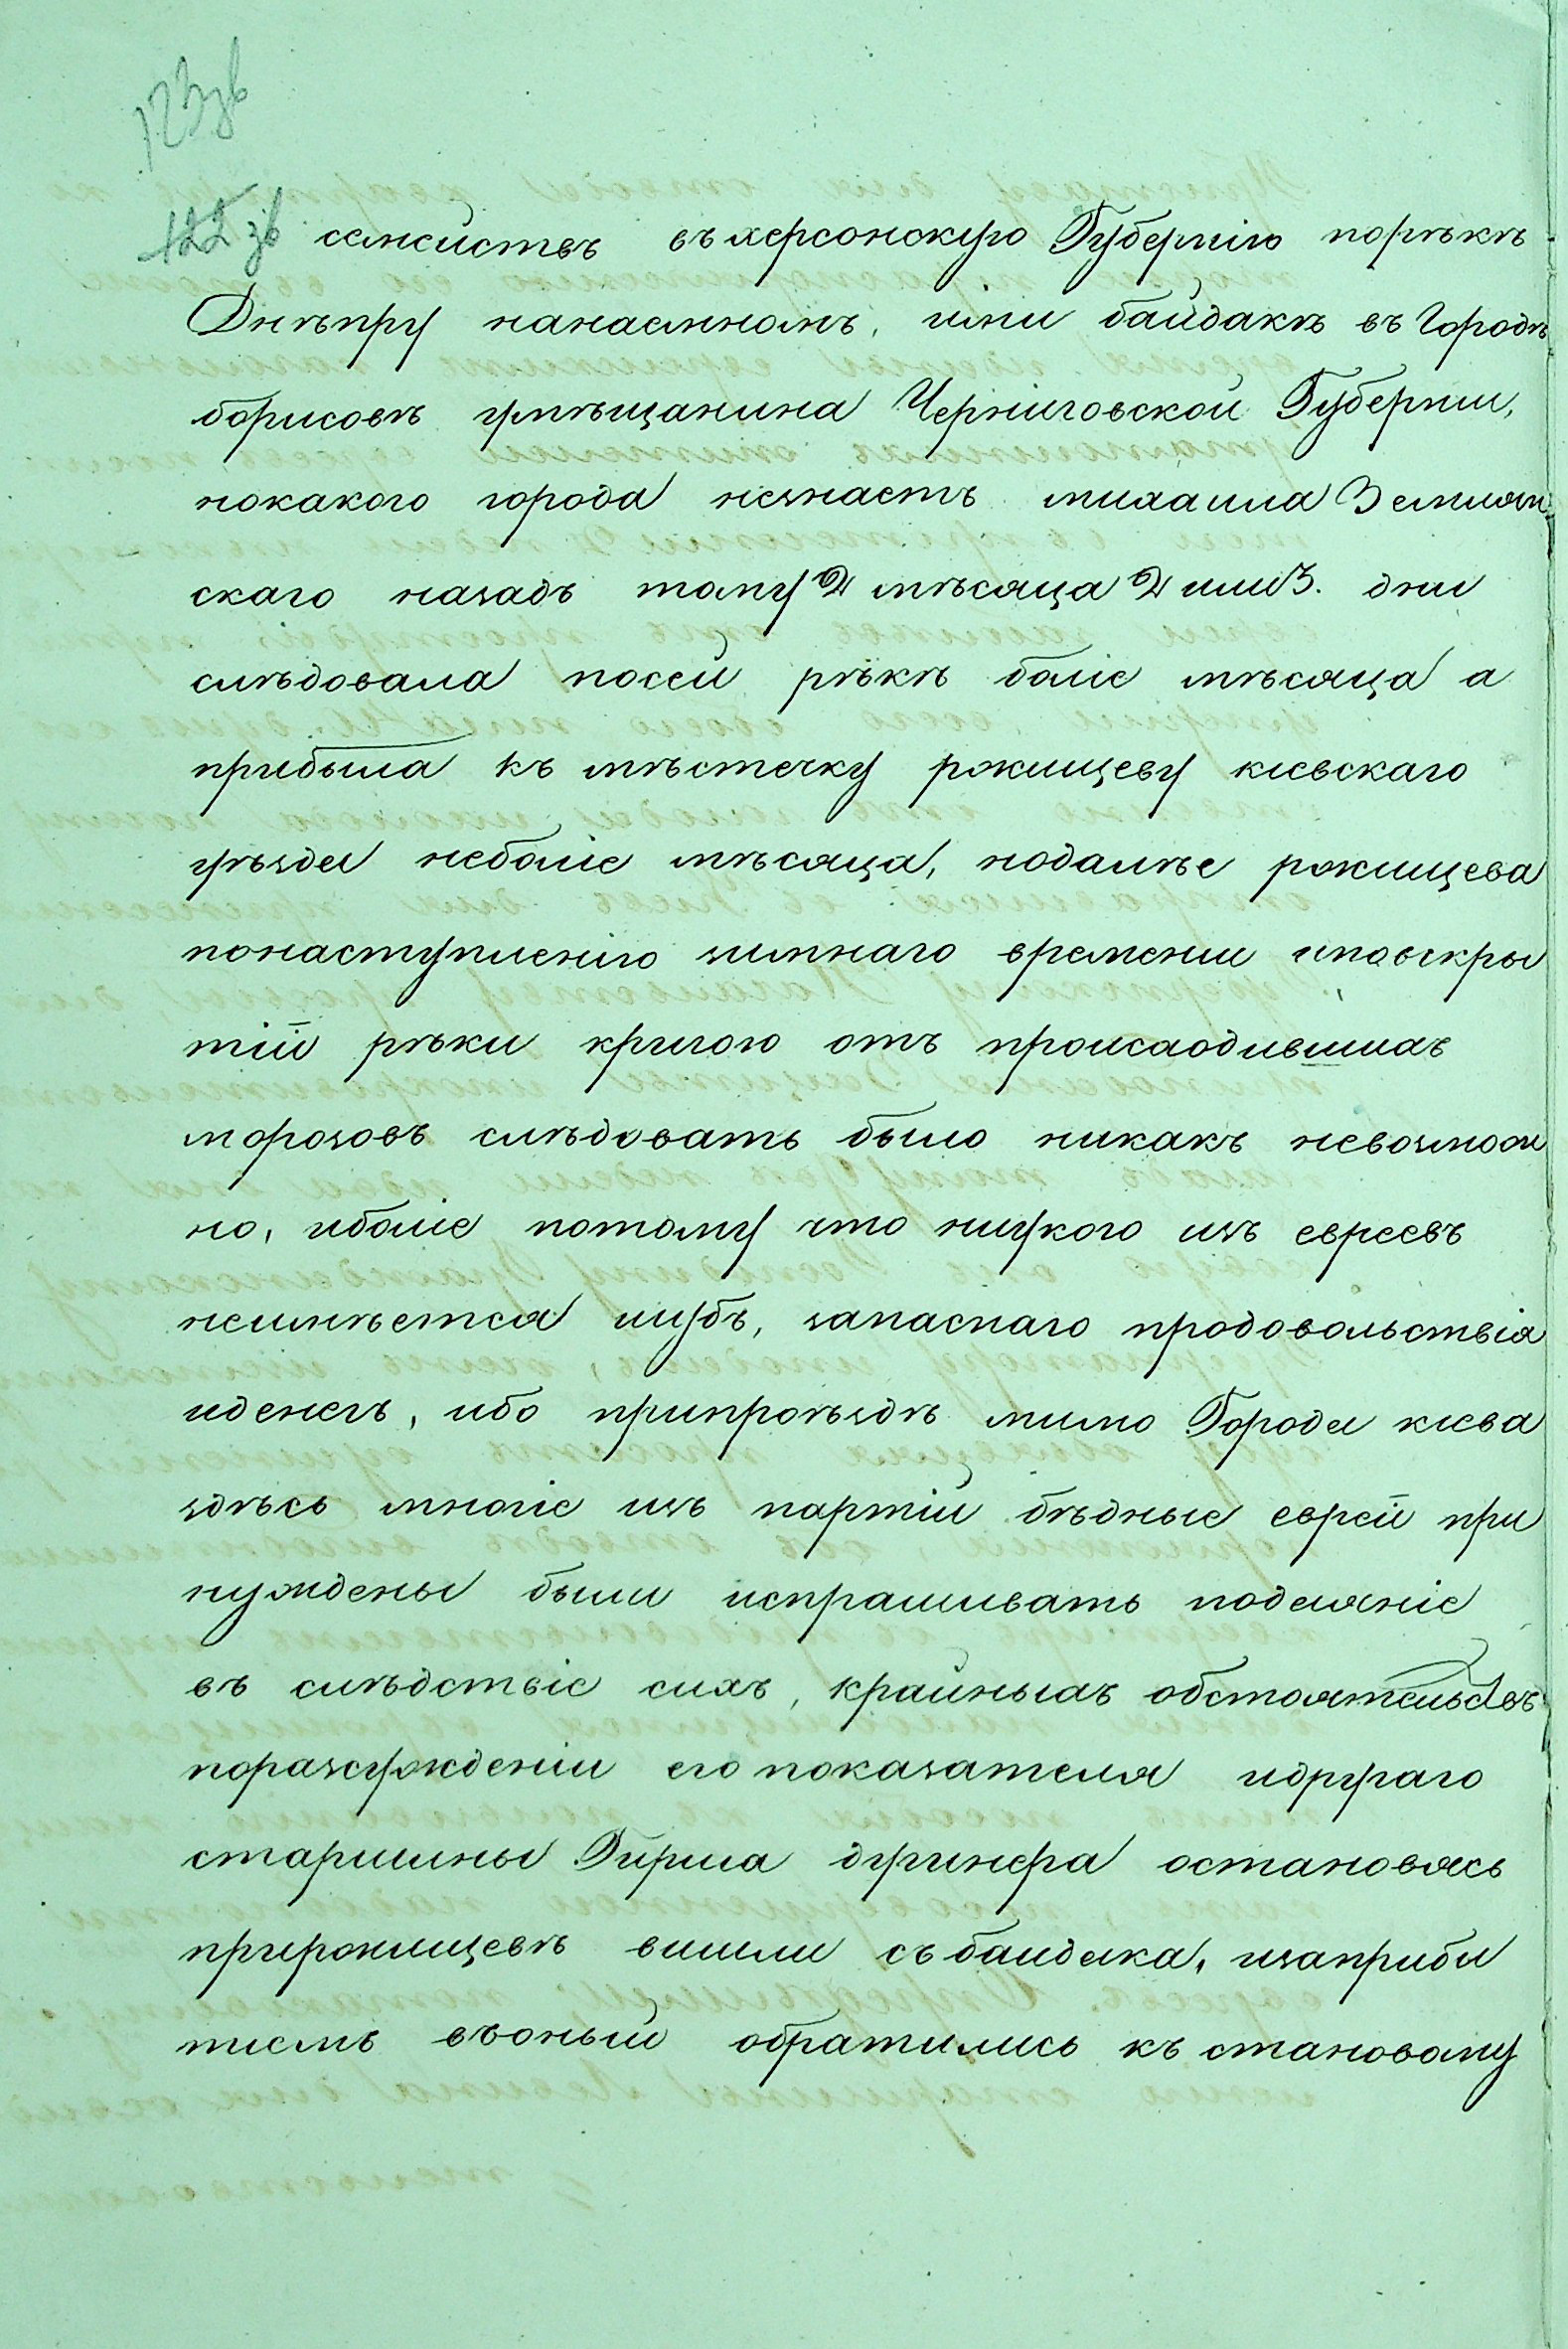 123 зв
122 зв семействъ въ херсонскую Губернію порѣкѣ
Днѣпру нанаемномъ, ими байдакѣ въ Городѣ
борисовѣ умѣщанина Черниговской Губерніи,
нокакого города незнаетъ михаила Землян
скаго назадъ тому 2 мѣсяца 2 или 3. дни
слѣдовала посей рѣкѣ боліе мѣсяца а
прибыла къ мѣстечку ржищеву кіевскаго
уѣзда неболіе мѣсяца, нодалѣе ржищева
понаступленію зимнаго времени иповскры
тій рѣки кригою отъ происходившихъ
морозовъ слѣдовать было никакъ невозмож
но, иболіе потому что ниукого изъ евреевъ
неимѣется шубъ, запаснаго продовольствія
иденегъ, ибо припроѣздѣ мимо Города кіева
здѣсь многіе изъ партіи бѣдные еврей при
нуждены были испрашивать подеяніе
въ слѣдствіе сихъ, крайныхъ обстоятельствъ
поразсужденіи его показателя идругаго
старшины Гирша дгринера остановясь
приржищевѣ вишли съ баидака, изаприби
тиемъ въоный обратились къ становому